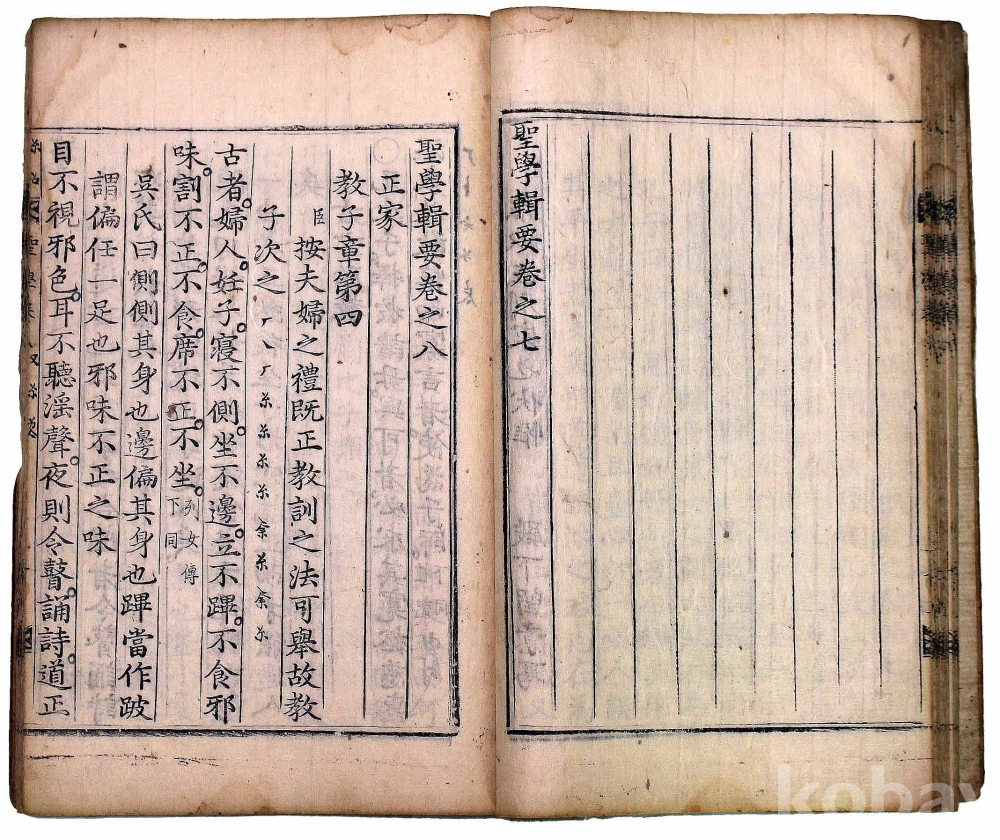 聖學輯要卷之七
聖學輯要卷之八
正家
教子章第四
臣按夫婦之禮既正教訓之法可舉故教
子次之
古者婦人妊子寢不側坐不邊立不蹕不食邪
味割不正不食席不正不坐列女傳下同
吳氏曰側側其身也邊偏其身也蹕當作跛
謂偏任一足也邪味不正之味
目不視邪色耳不聽淫聲夜則令瞽誦詩道正
kobay